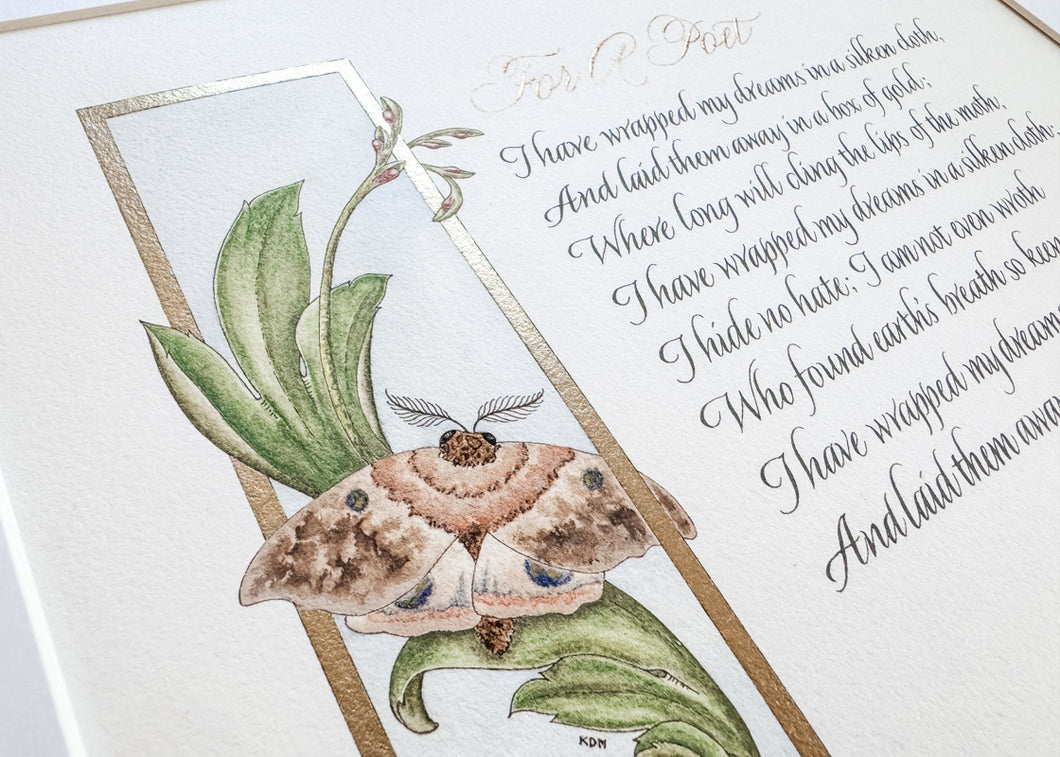 For A Poet
I have wrapped my dreams in a silken cloth,
And laid them away in a box of gold;
Where long will cling the lips of the moth,
I have wrapped my dreams in a silken cloth,
I hide no hate; I am not even wroth
Who found earth's breath so keen
I have wrapped my dream
And laid them away
KDM